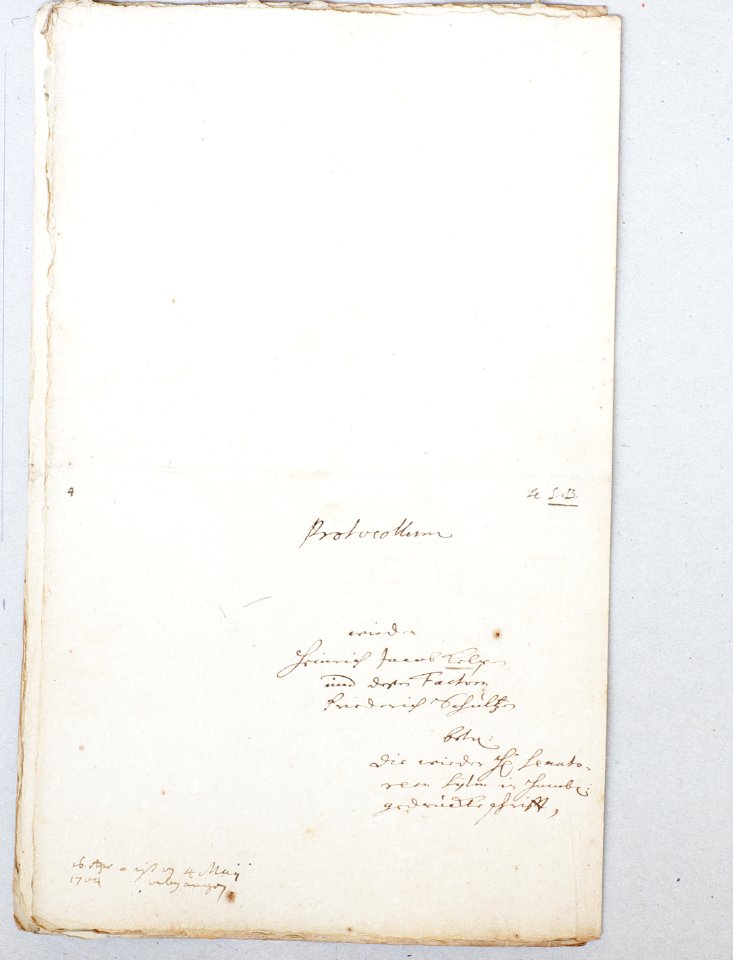 4
4 L.B.
Protocollum
wieder
Heinrich Jacob
und deßen Factorn
Friederich Schultzen
betr:
die wieder H. Senato-
rem in Hamb:
gedrückte schrifft,
16. Apr 4 Maij
1704